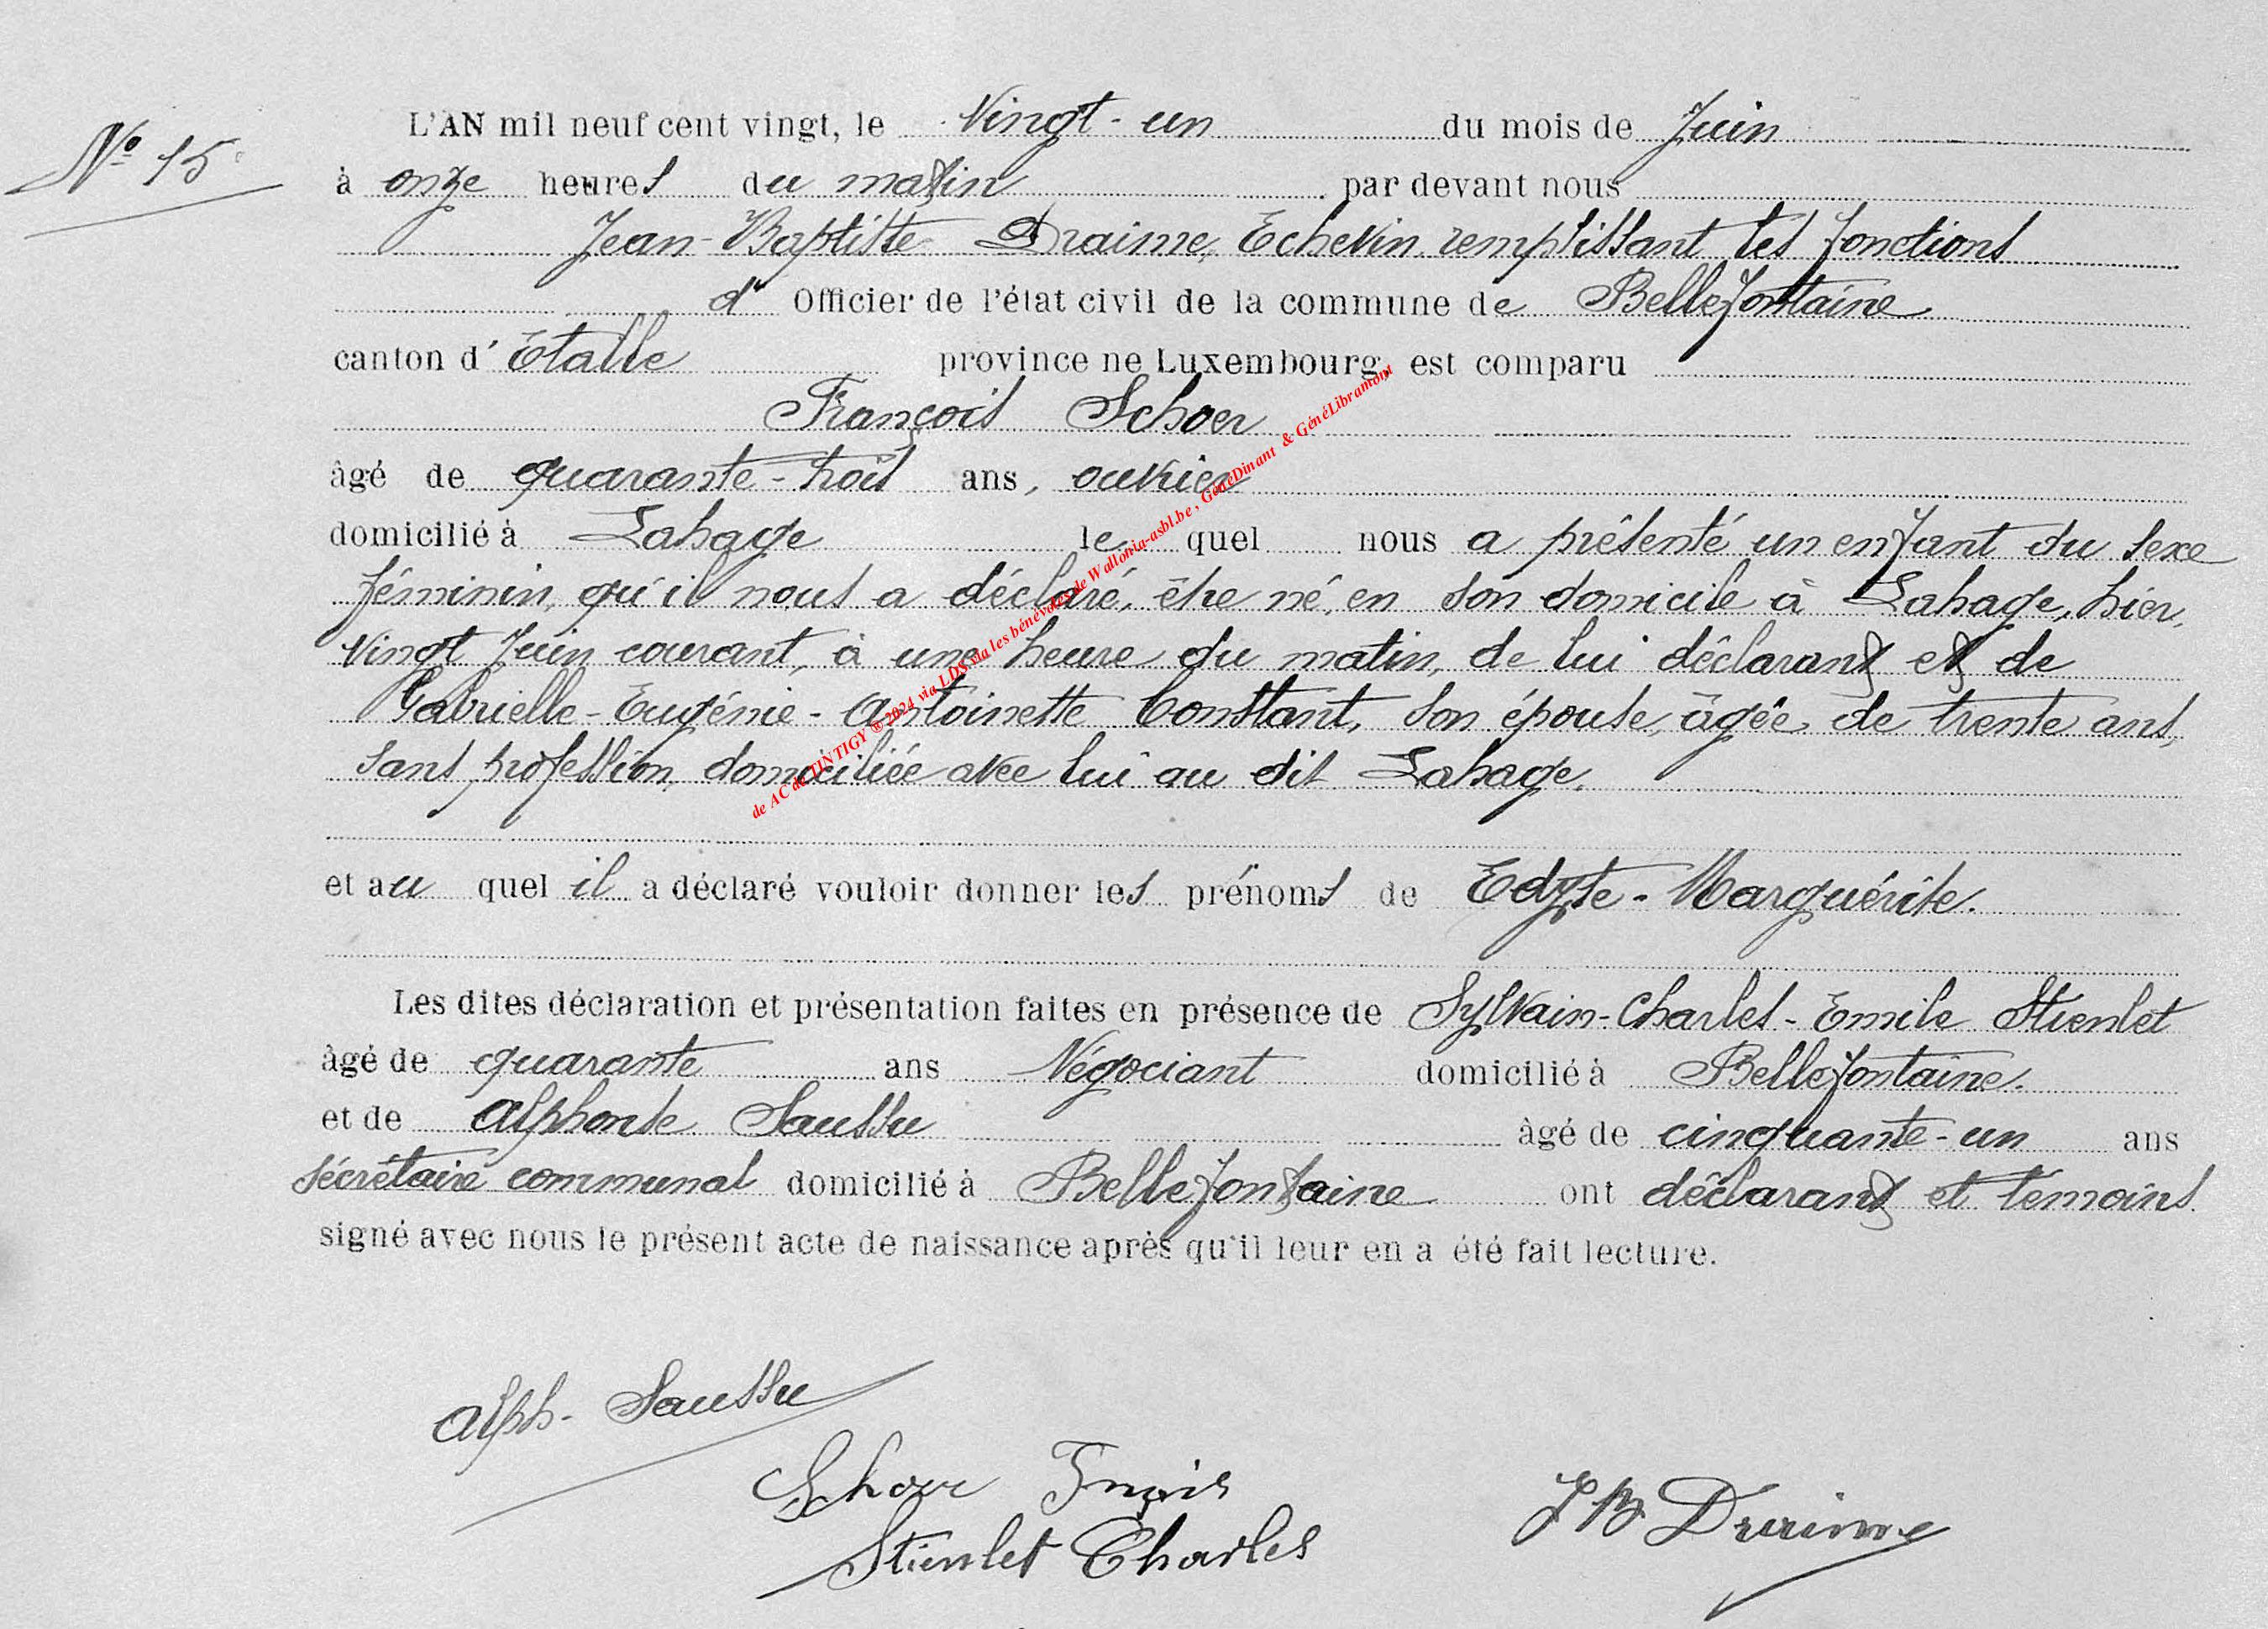 N° 15
L'AN mil neuf cent vingt, le Vingt-un du mois de Juin
à onze heures du matin par devant nous
Jean-Baptiste Draime, Echevin remplissant les fonctions
d' Officier de l'état civil de la commune de Bellefontaine
canton d' Etalle province ne Luxembourg, est comparu
François Schoer
âgé de quarante-trois ans, ouvrier
domicilié à Lahage le quel nous a présenté un enfant du sexe
féminin, qu'il nous a déclaré, être né, en son domicile à Lahage, hier,
vingt Juin courant, à une heure du matin, de lui déclarant et de
Gabrielle-Eugénie-Antoinette Constant, son épouse, âgée de trente ans,
sans profession, domiciliée avec lui au dit Lahage.
et au quel il a déclaré vouloir donner les prénoms de Edyte-Marguérite.
Les dites déclaration et présentation faites en présence de Sylvain-Charles-Emile Stienlet
âgé de quarante ans Négociant domicilié à Bellefontaine.
et de Alphonse Saussu âgé de cinquante-un ans
sécrétaire communal domicilié à Bellefontaine ont déclarant et témoins
signé avec nous le présent acte de naissance après qu'il leur en a été fait lecture.
Alph. Saussu
Schoer Frnçois
Stienlet Charles
J B Draime
de AC de TINTIGY ® 2024 via LDS via les bénévoles de Wallonia-asbl.be , GénéDinant & GénéLibramont